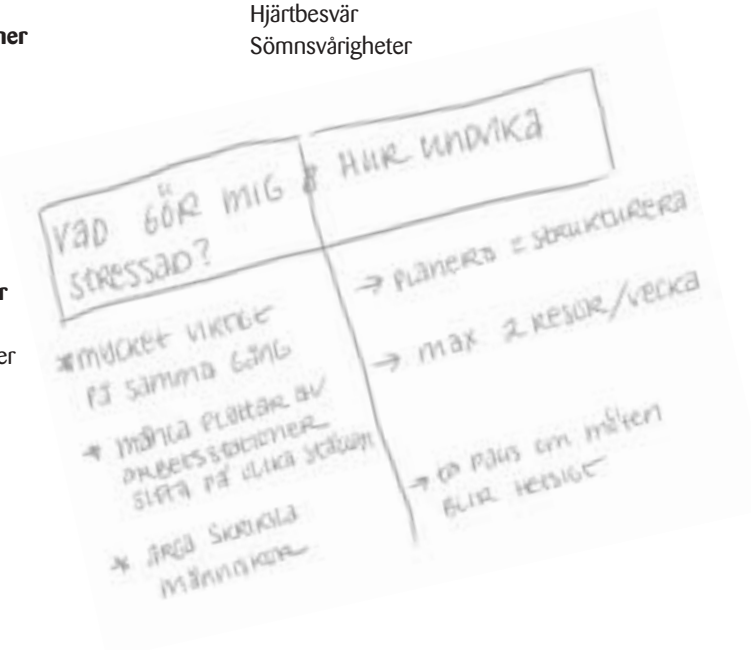 ner
Hjärtbesvär
Sömnsvårigheter
r
er
VAD GÖR MIG
STRESSAD?
HUR UNDVIKA
* MYCKET VIKTIGT
PÅ SAMMA GÅNG
* MÅNGA AV
PÅ OLIKA
* ARGA SKRIKIGA
MÄNNISKOR
→ PLANERA = STRUKTURERA
→ MAX 2 RESOR/VECKA
→ PAUS OM MÖTEN
BLIR HETSIGT